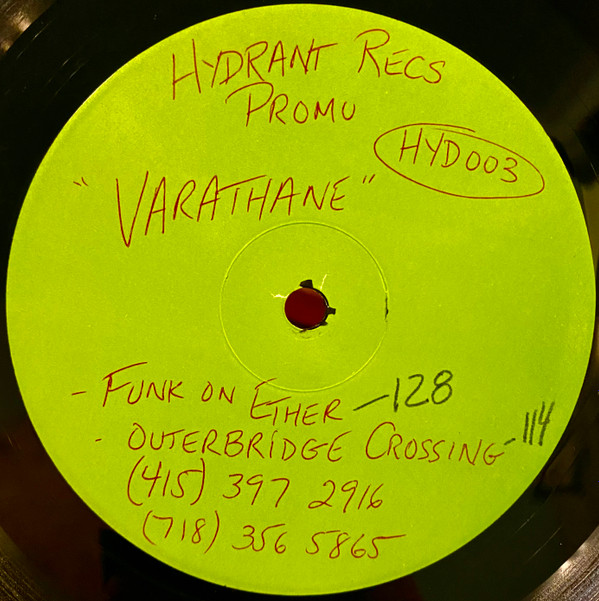 HYDRANT RECS
PROMO
HYD003
"VARATHANE"
- FUNK ON ETHER -128
- OUTERBRIDGE CROSSING -114
(415) 397 2916
(718) 356 5865